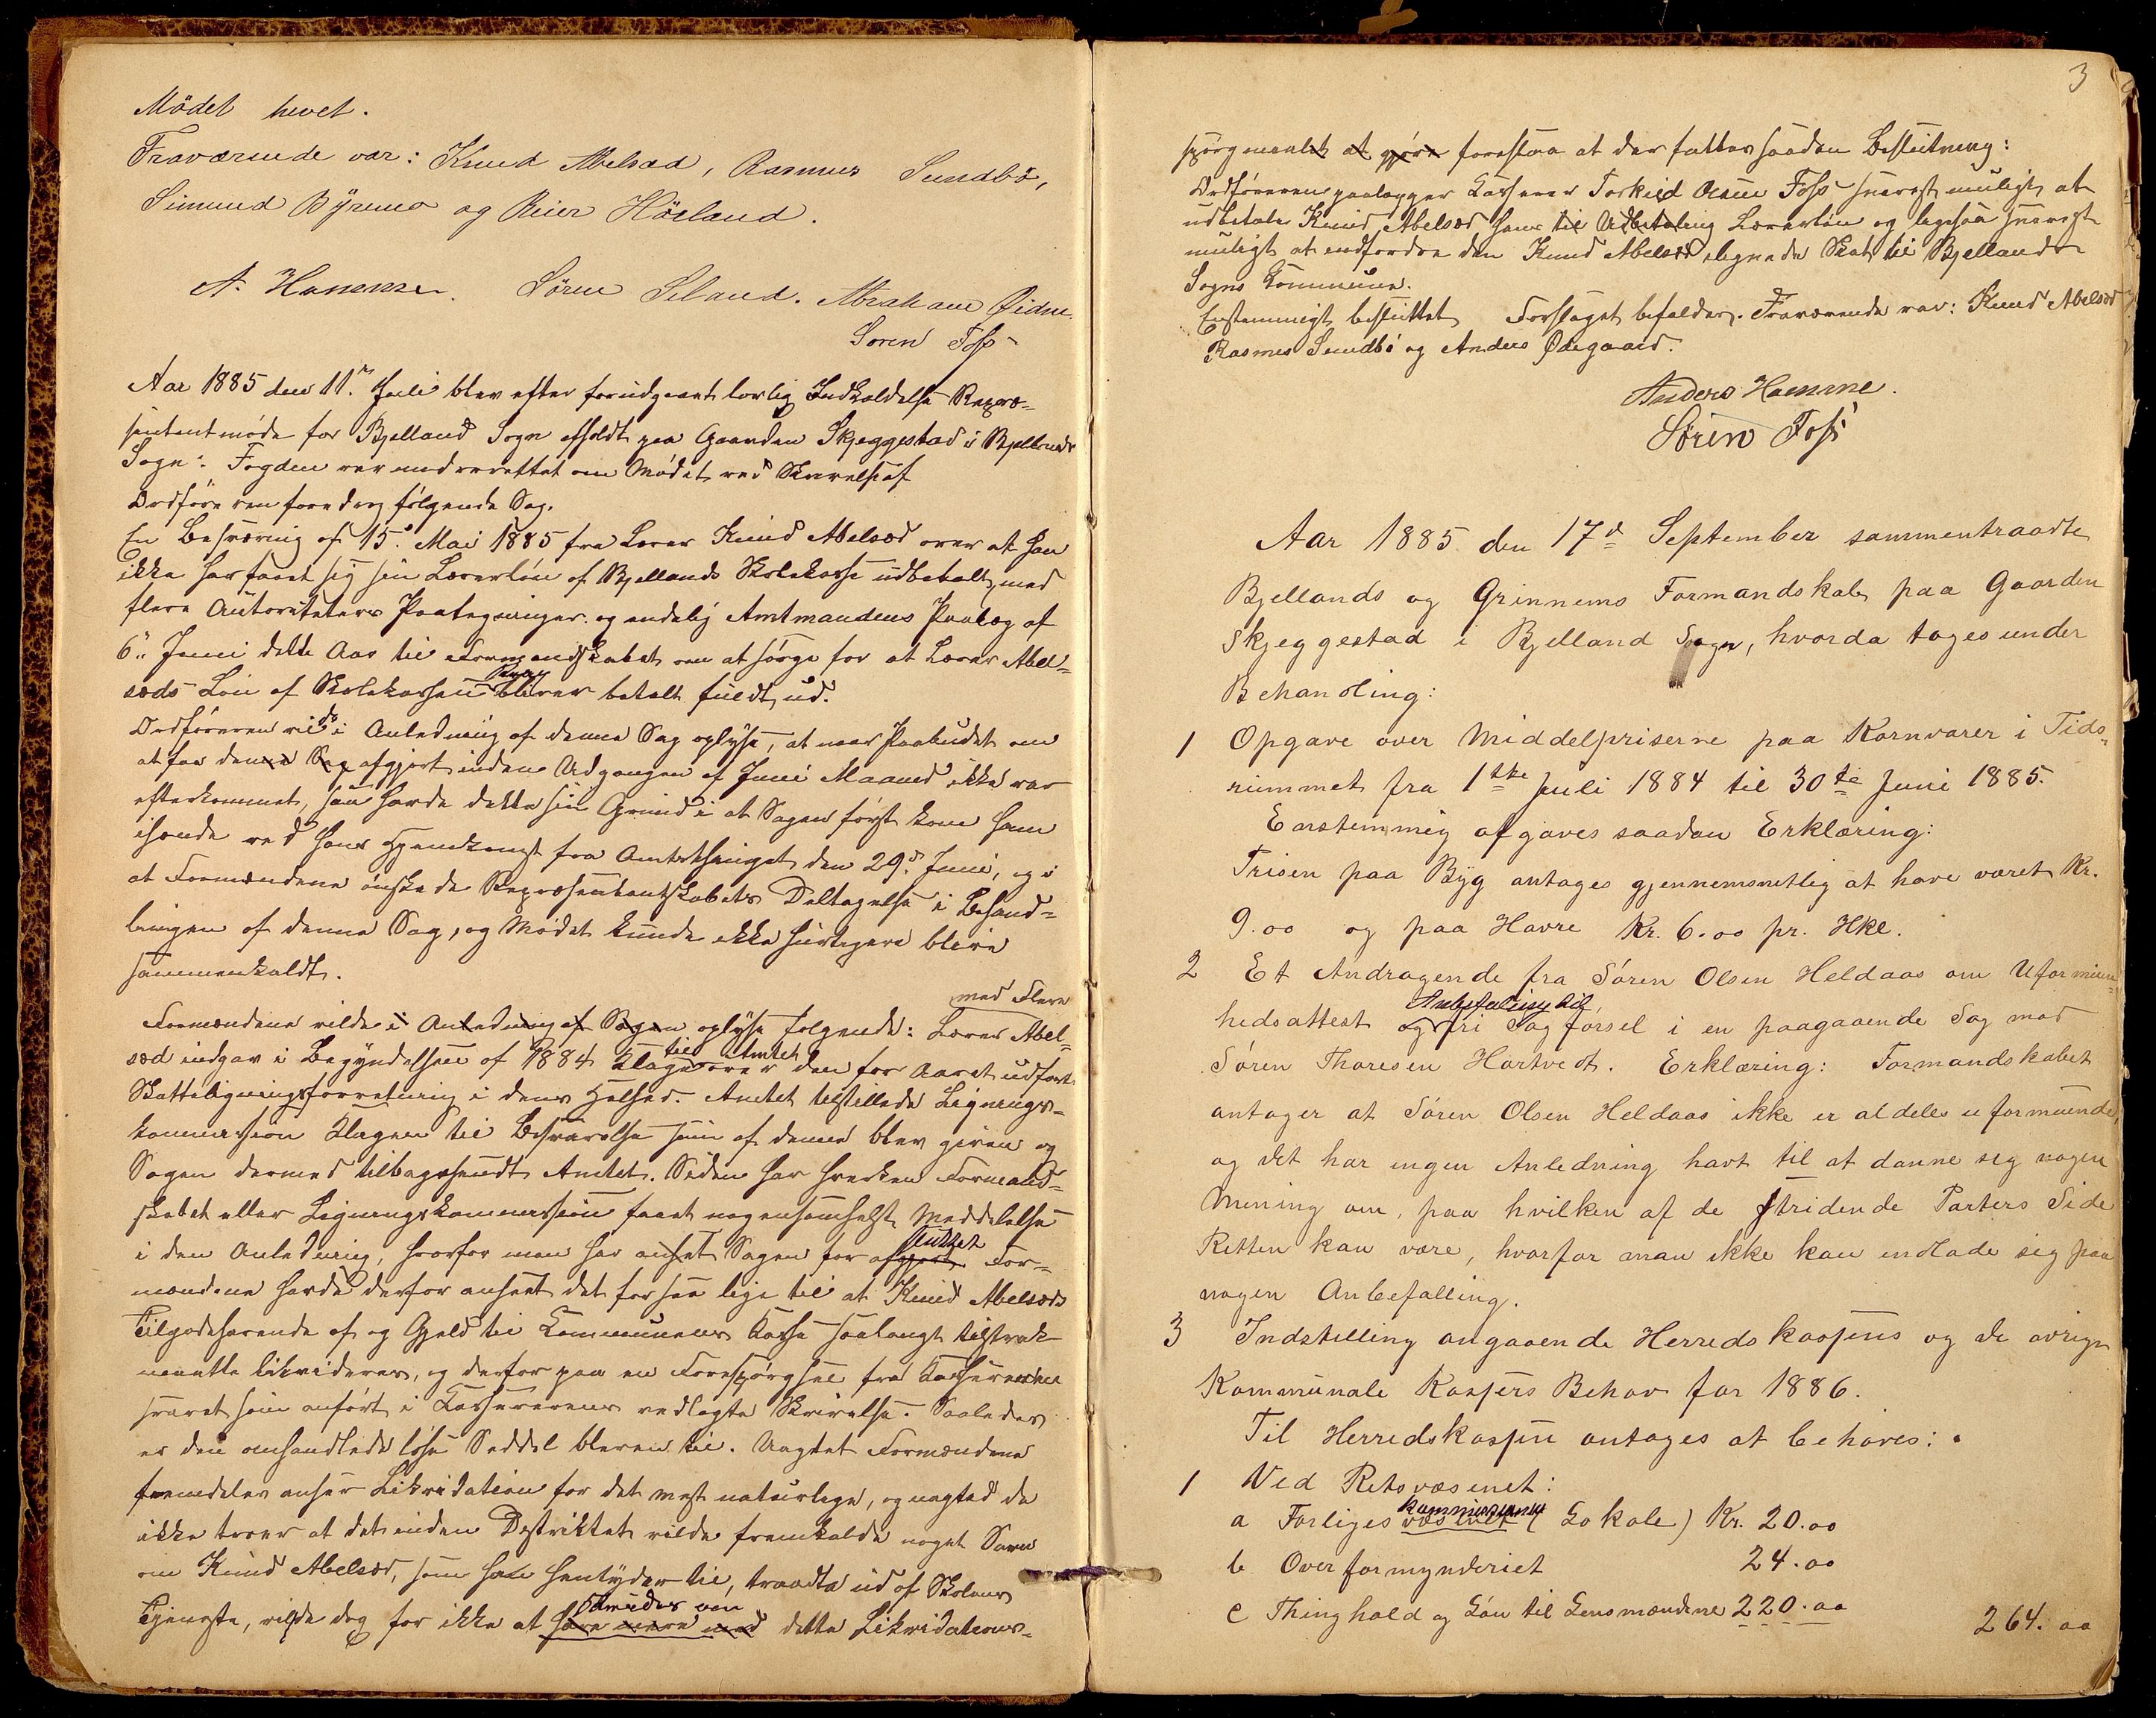 Mödet hevet.
Fraværende var: Knud Abelsæd, Rasmus Sundbö,
Simund Byremo og Reier Höiland.
A. Hamenne. Sören Seland. Abraham Øidne.
Soren Foss
Aar 1885 den 11. Juli blev efter forudgaaet lovlig Indkaldelse Repræ=
sentantmöde for Bjelland Sogn afholdt paa Gaarden Skjeggestad i Bjellands
Sogn. Fogden var underrettet om Mödet ved Skrivelse af
Ordföreren foredrog fölgende Sag.
En Besværing af 15. Mai 1885 fra Lærer Knud Abelsæd over at han
ikke har faaet sig sin Lærerlön af Bjellands Skolekasse udbetalt, med
flere Autoriteters Paategninger og endelig Amtmandens Paalæg af
6. Juni dette Aar til Formandskabet om at sörge for at Lærer Abel=
sæds Lön af Skolekassen bliver betalt fuldt ud.
Ordföreren vilde i Anledning af denne Sag oplyse, at naar Paabudet om
at faa denne Sag afgjort inden Udgangen af Juni Maaned ikke var
efterkommet, saa havde dette sin Grund i at Sagen först kom ham
ihænde ved hans Hjemkomst fra Amtsthinget den 29. Juni, og i
at Formændene önskede Repræsentantskabets Deltagelse i Behand=
lingen af denne Sag, og Mödet kunde ikke hurtigere blive
sammenkaldt.
med Flere
Formændene vilde i Anledning af Sagen oplyse fölgende: Lærer Abel=
til Amtet
sæd indgav i Begyndelsen af 1884 Klage over den for Aaret udförte
Skatteligningsforretning i dens Helhed. Amtet tilstillede Lignings=
kommission Klagen til Besvarelse som af denne blev given og
Sagen dermed tilbagesendt Amtet. Siden har hverken Formand=
skabet eller Ligningskommission faaet nogensomhelst Meddelelse
sluttet
i den Anledning, hvorfor man har anset Sagen for afgjort. For=
mændene havde derfor anseet det for saa lige til at Knud Abelsæds
Tilgodehavende af og Gjeld til Kommunens Kasse saalangt tilstræk
likvideres, og derfor paa en Forespörgsel fra Kassereren
svaret som anfört i Kassererens vedlagte Skrivelse. Saaledes
er den omhandlede löse Seddel bleven til. Uagtet Formændene
fremdeles anser Likvidation for det mest naturlige, og uagtet de
ikke troer at det inden Distriktet vilde fremkalde noget Savn
om Knud Abelsæd, som han hentyder til, traadte ud af Skolens
Tjeneste, vilde dog for ikke at have mere med dette Likvidations=
3
spörgsmaalet at gjöre foreslaa at der fattes saadan Beslutning:
Ordföreren paalægger Kasserer Torkild Olsen Foss snarest muligt at
udbetale Knud Abelsæd hans til Udbetaling Lærerlön og ligesaa snarest
muligt at indfordre den Knud Abelsæd ilignede Skat til Bjellands
Sogns Kommune.
Enstemmigt besluttet Forslaget befalder. Fraværende var: Knud Abelsæd
Rasmus Sundbö og Anders Ødegaard.
Anders Hamenne.
Sören Foss
Aar 1885 den 17d September sammentraadte
Bjellands og Grinnems Formandskab paa Gaarden
Skjeggestad i Bjelland Sogn, hvorda toges under
Behandling:
1 Opgave over Middelpriserne paa Kornvarer i Tids=
rummet fra 1ste Juli 1884 til 30te Juni 1885.
Eenstemmig afgaves saadan Erklæring:
Prisen paa Byg antages gjennemsnetlig at have været Kr.
9.00 og paa Havre Kr. 6.00 pr. Hkl.
2 Et Andragende fra Sören Olsen Heldaas om Uformuen=
Anbefaling til
hedsattest og fri Sagförsel i en paagaaende Sag mod
Sören Thoresen Hartvedt. Erklæring: Formandskabet
antager at Sören Olsen Heldaas ikke er aldeles uformuende,
og det har ingen Anledning havt til at danne seg nogen
Mening om, paa hvilken af de stridende Parters Side
Retten kan være, hvorfor man ikke kan indlade seg paa
nogen Anbefalling.
3 Indstilling angaaende Herredskassens og de övrige
Kommunale Kassers Behov for 1886.
Til Herredskassen antages at behöves:
1 Ved Retsvæsenet:
kommissionen
a Forligesvæsenet (Lokale) Kr. 20.00
b Overformynderiet 24.00
c Thinghold og Lön til Lensmændene 220.00 264.00